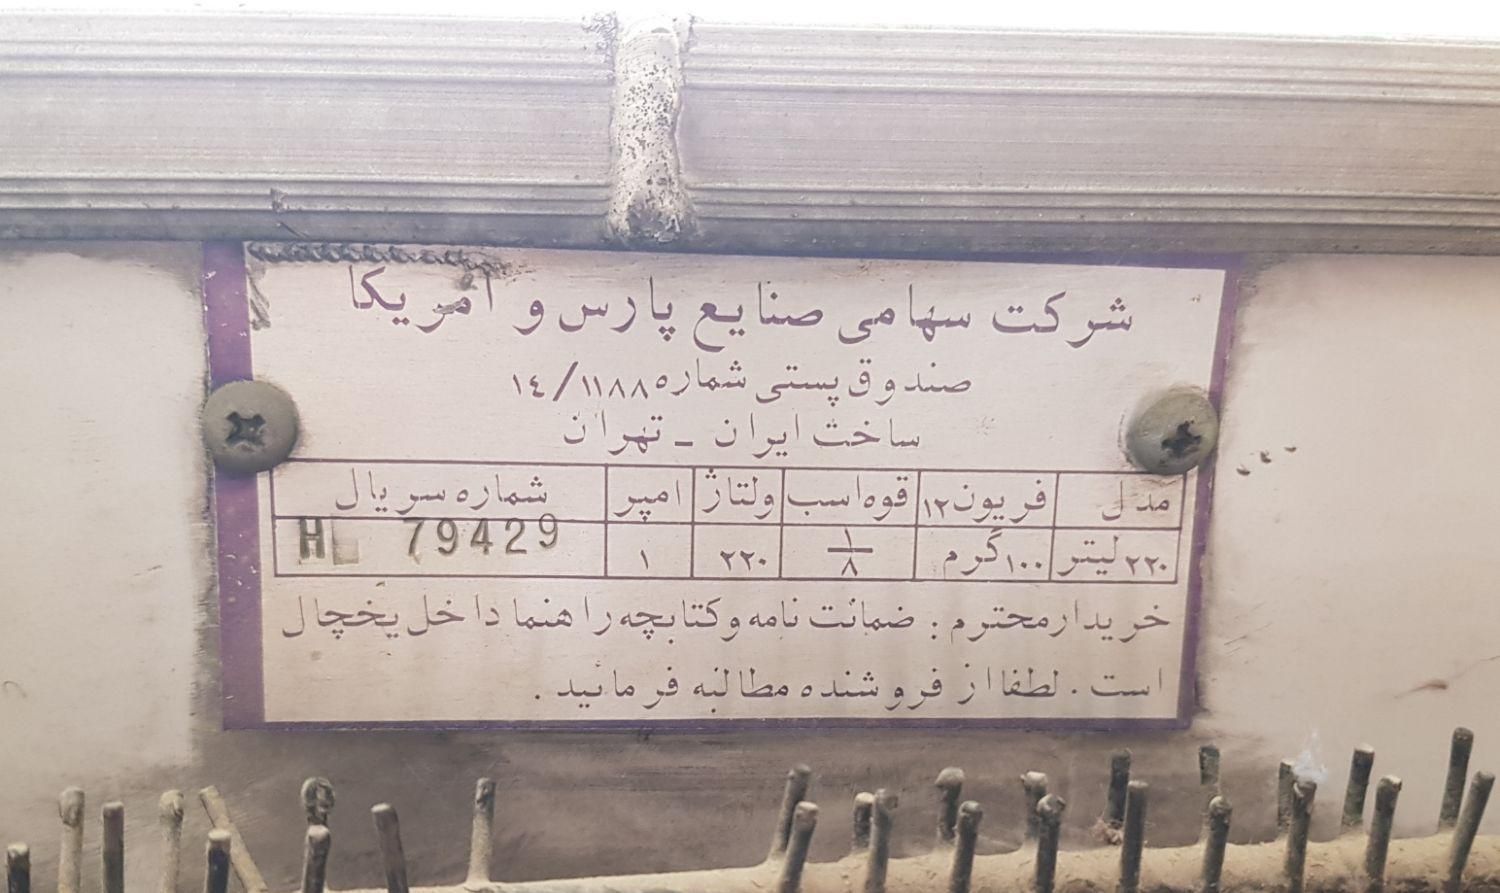 شرکت سهامی صنایع پارس و امریکا
صندوق پستی شماره ۱۴/۱۱۸۸
ساخت ایران - تهران
مدل فریون ۱۲ قوه اسب ولتاژ امپر شماره سریال
۲۲۰ لیتر ۱۰۰ گرم ۱/۸ ۲۲۰ ۱ H 79429
خریدار محترم : ضمانت نامه و کتابچه راهنما داخل یخچال
است . لطفا از فروشنده مطالبه فرمائید .